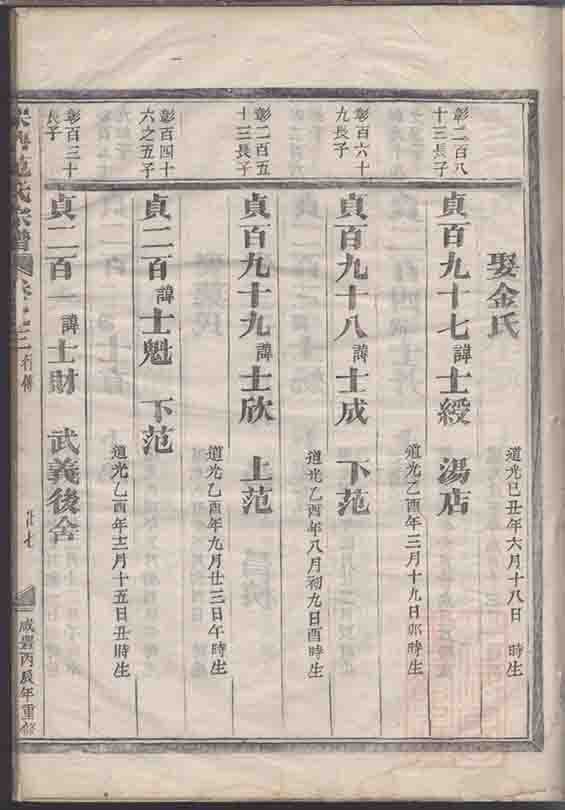 娶金氏
道光己丑年六月十八日 時生
彰二百八
十三長子
貞百九十七諱士綬 湯店
道光乙酉年三月十九日卯時生
彰百六十
九長子
貞百九十八諱士成 下范
道光乙酉年八月初九日酉時生
彰二百五
十三長子
貞百九十九諱士欣 上范
道光乙酉年九月廿三日午時生
彰百四十
六之五子
貞二百諱士魁 下范
道光乙酉年十二月十五日丑時生
彰百三十
長子
貞二百一諱士財 武義後舍
范氏宗譜
行傳
咸豐丙辰年重修